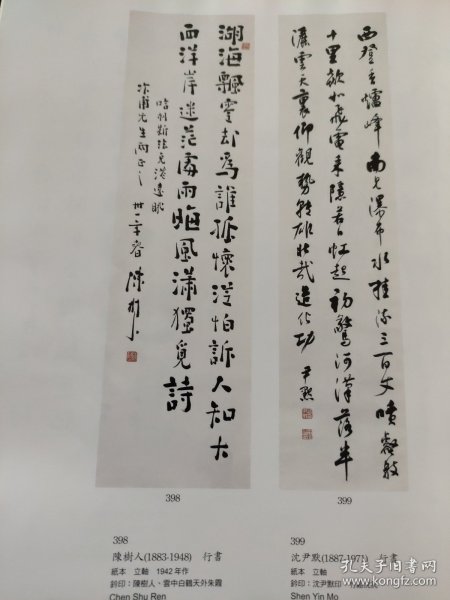 湖海飄零却為誰孤懷從怕訴人知大
西洋岸迷茫處雨晦風瀟獨覓詩
港遠眺
先生兩正之 卅一年春 陳樹人
西登香爐峰南見瀑布水挂流三百丈噴壑數
十里欻如飛電來隱若白虹起初驚河漢落半
灑雲天裏仰觀勢轉雄壯哉造化功 尹默
398
399
398
陳樹人(1883-1948) 行書
紙本 立軸 1942年作
鈐印：陳樹人、雲中白鶴天外朱霞
Chen Shu Ren
399
沈尹默(1887-1971) 行書
紙本 立軸
鈐印：沈尹默印
Shen Yin Mo
孔夫子旧书网